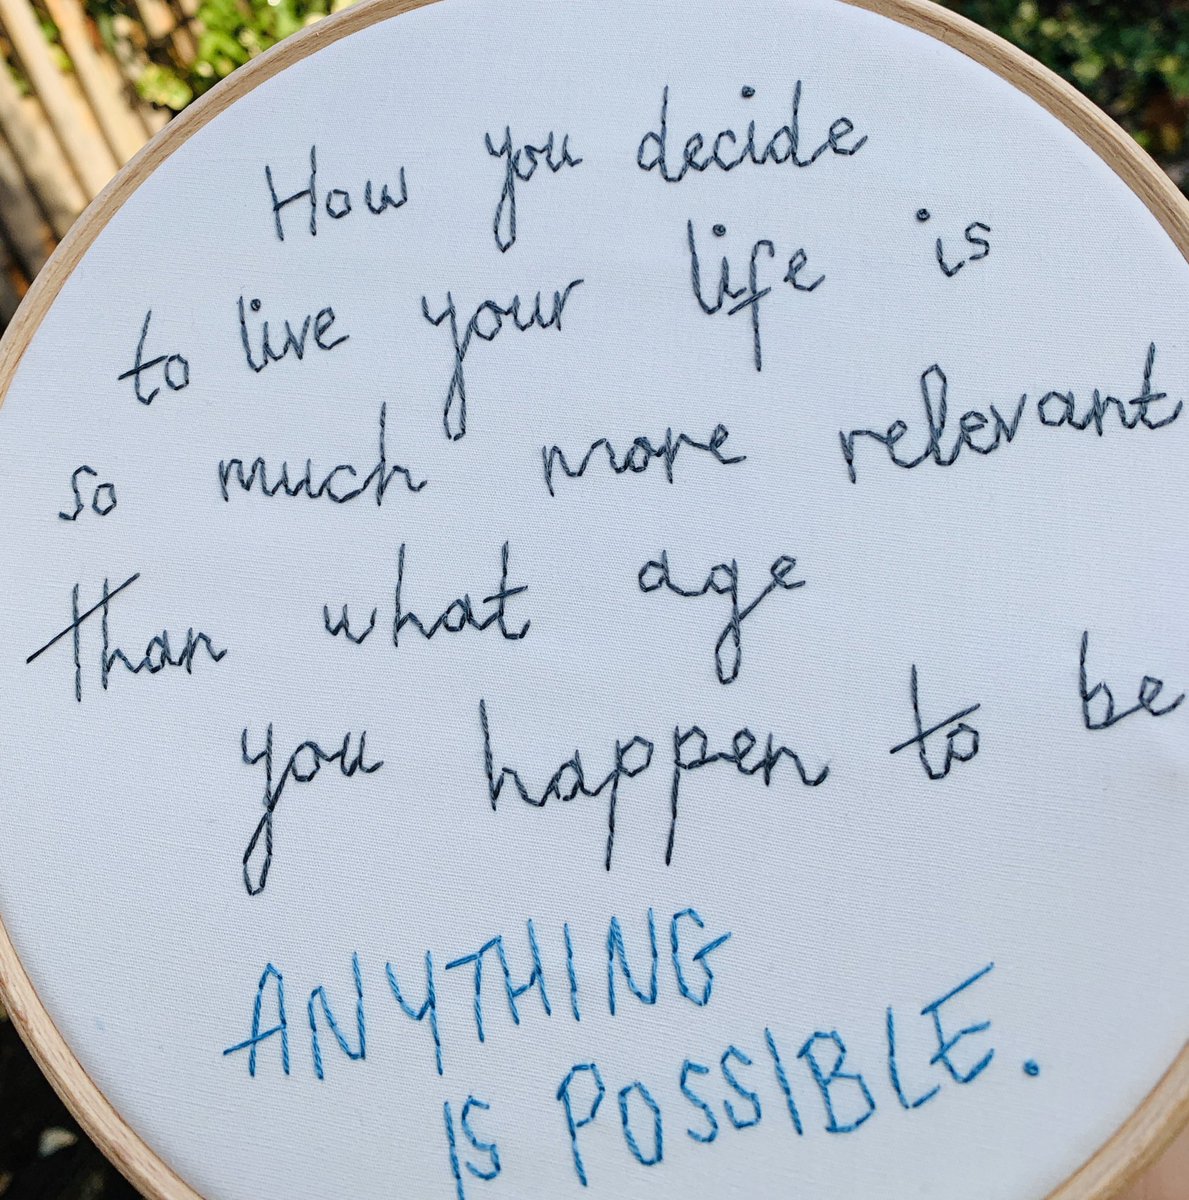 How you decide
to live your life is
so much more relevant
than what age
you happen to be
ANYTHING
IS POSSIBLE.